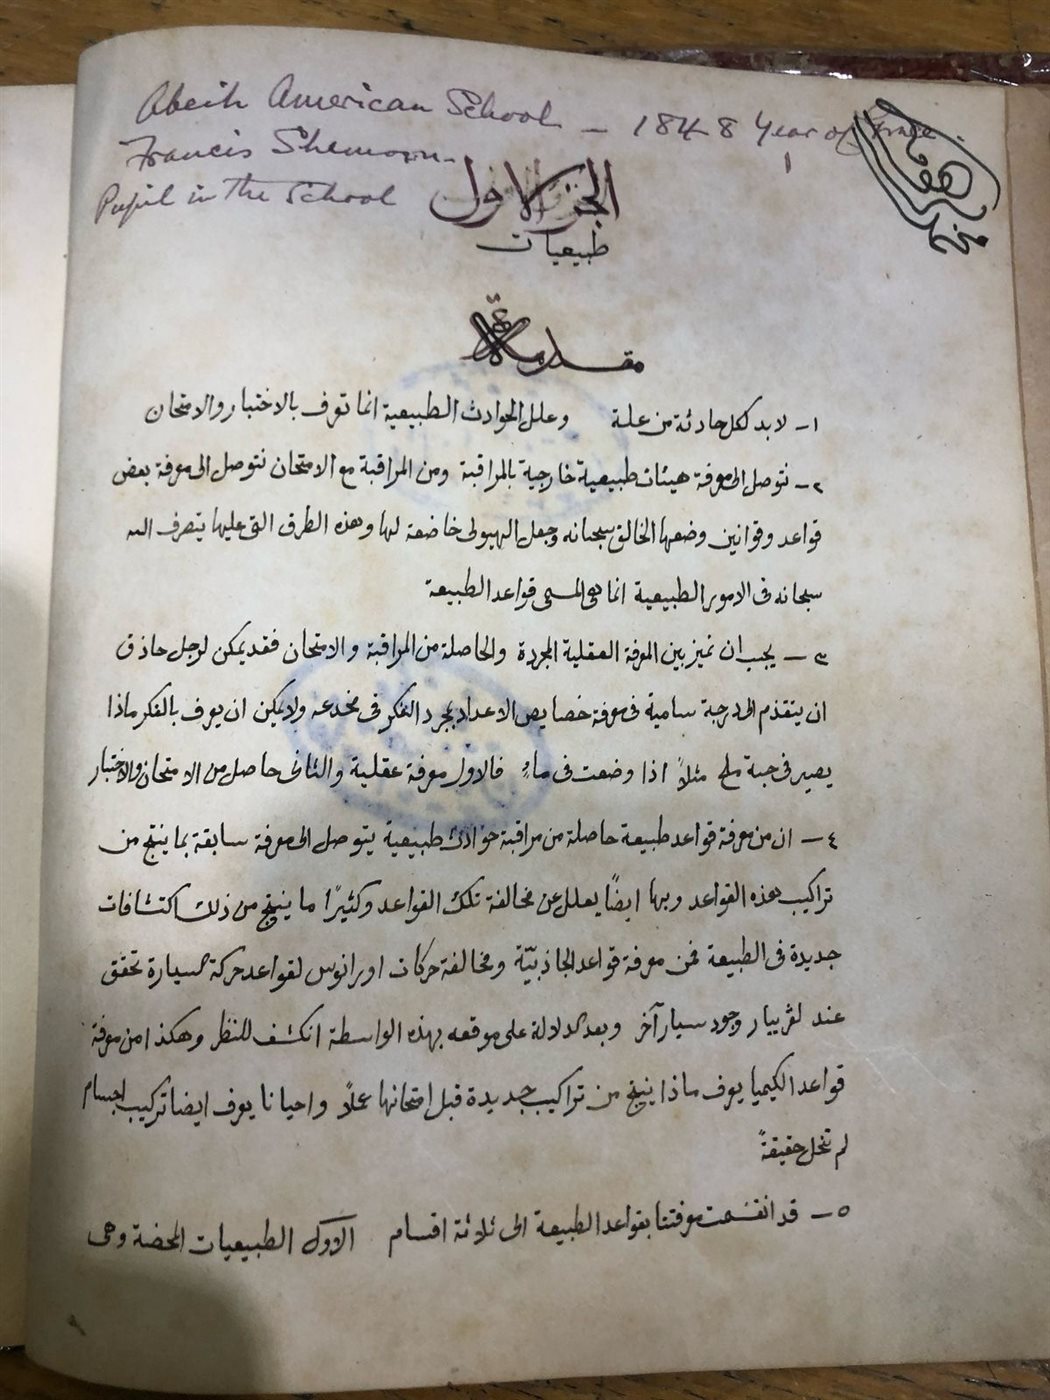 Abeih American School – 1848 Year of Grace
Francis Shemoon
Pupil in the School
١
الجزء الاول
طبيعيات
مقدمة
١ــ لا بد لكل حادثة من علة وعلل الحوادث الطبيعية انما تعرف بالاختبار والامتحان
٢ــ نتوصل الى معرفة هيئات طبيعية خارجية بالمراقبة ومن المراقبة مع الامتحان نتوصل الى معرفة بعض
قواعد وقوانين وضعها الخالق سبحانه وجعل الهيولى خاضعة لها وهذه الطرق التى عليها يتصرف الله
سبحانه فى الامور الطبيعية انما هى المسمى قواعد الطبيعة
٣ــ يجب ان نميز بين المعرفة العقلية المجردة والحاصلة من المراقبة والامتحان فقد يمكن لرجل حاذق
ان يتقدم الى درجة سامية فى معرفة خصايص الاعداد بمجرد الفكر فى مخدعه ولا يمكن ان يعرف بالفكر ماذا
يصير فى حبة ملح مثلاً اذا وضعت فى ماءٍ فالاول معرفة عقلية والثانى حاصل من الامتحان والاختبار
٤ــ ان من معرفة قواعد طبيعة حاصلة من مراقبة حوادث طبيعية يتوصل الى معرفة سابقة بما ينتج من
تراكيب هذه القواعد وبها ايضًا يعلل عن مخالفة تلك القواعد وكثيرًا ما ينتج من ذلك اكتشافات
جديدة فى الطبيعة فمن معرفة قواعد الجاذبيّة ومخالفة حركات اورانوس لقواعد حركة السيارة تحقق
عند لڤرييار وجود سيار آخر وبعد الدلالة على موقعه بهذه الواسطة انكشف للنظر وهكذا من معرفة
قواعد الكيميا يعرف ماذا ينتج من تراكيب جديدة قبل امتحانها عملاً واحيانا يعرف ايضا تركيب اجسام
لم تنحل حقيقةً
٥ــ قد انقسمت معرفتنا بقواعد الطبيعة الى ثلاثة اقسام الاول الطبيعيات المحضة وهى